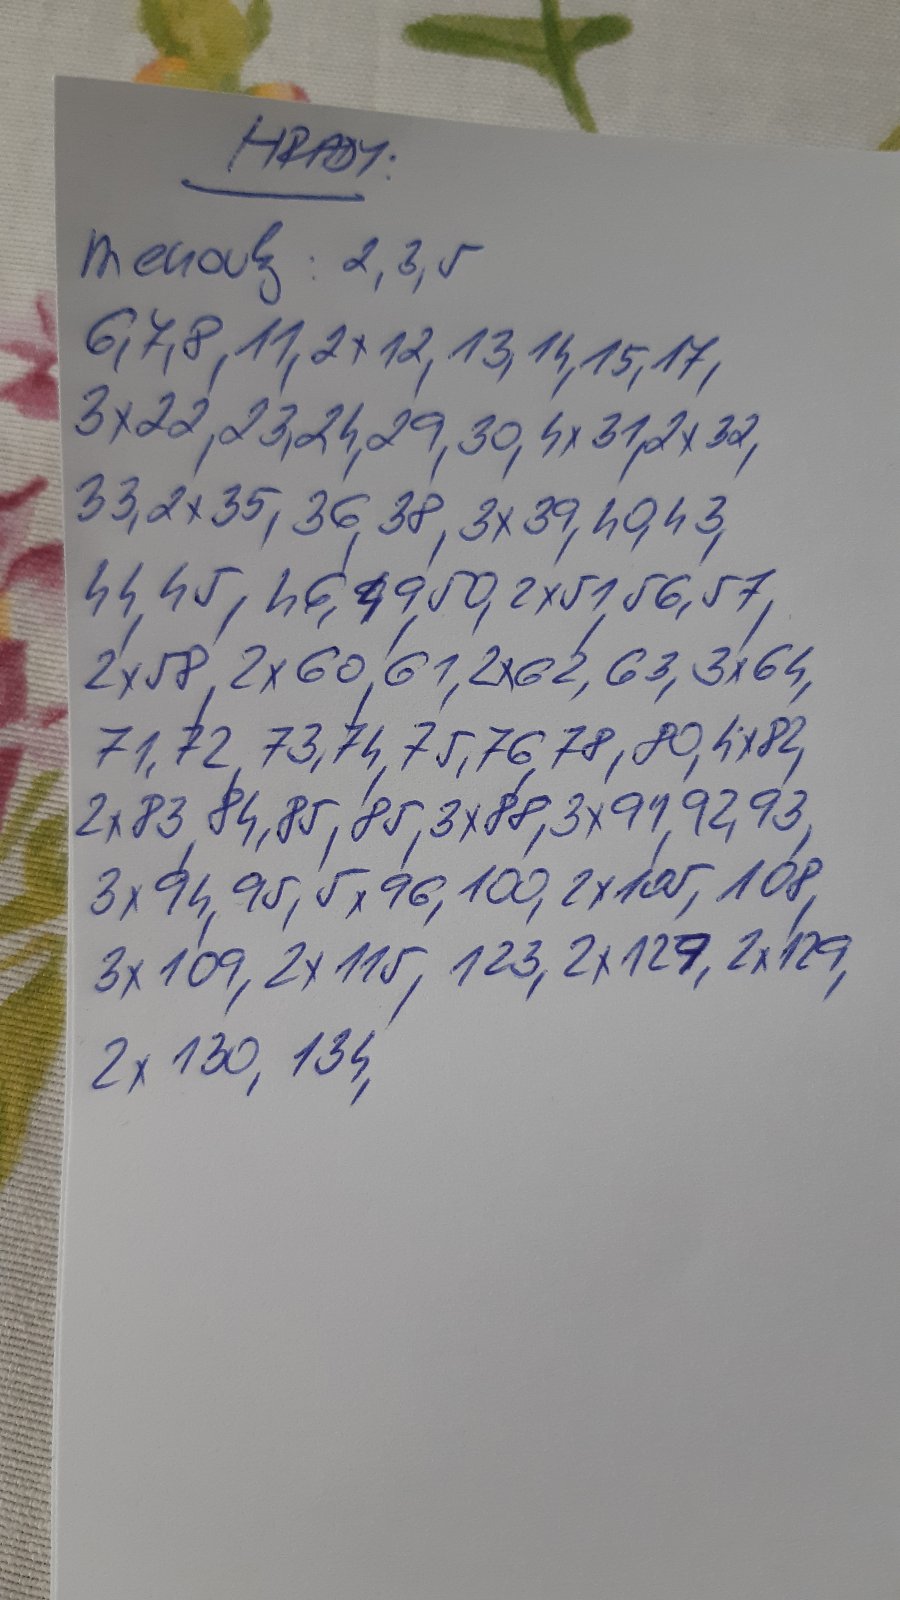 HRADY:
menovky: 2, 3, 5
6, 7, 8, 11, 2x12, 13, 14, 15, 17,
3x22, 23, 24, 29, 30, 4x31, 2x32,
33, 2x35, 36, 38, 3x39, 40, 43,
44, 45, 46, 49, 50, 2x51, 56, 57,
2x58, 2x60, 61, 2x62, 63, 3x64,
71, 72, 73, 74, 75, 76, 78, 80, 4x82,
2x83, 84, 85, 85, 3x88, 3x91, 92, 93,
3x94, 95, 5x96, 100, 2x105, 108,
3x109, 2x115, 123, 2x127, 2x129,
2x130, 134,